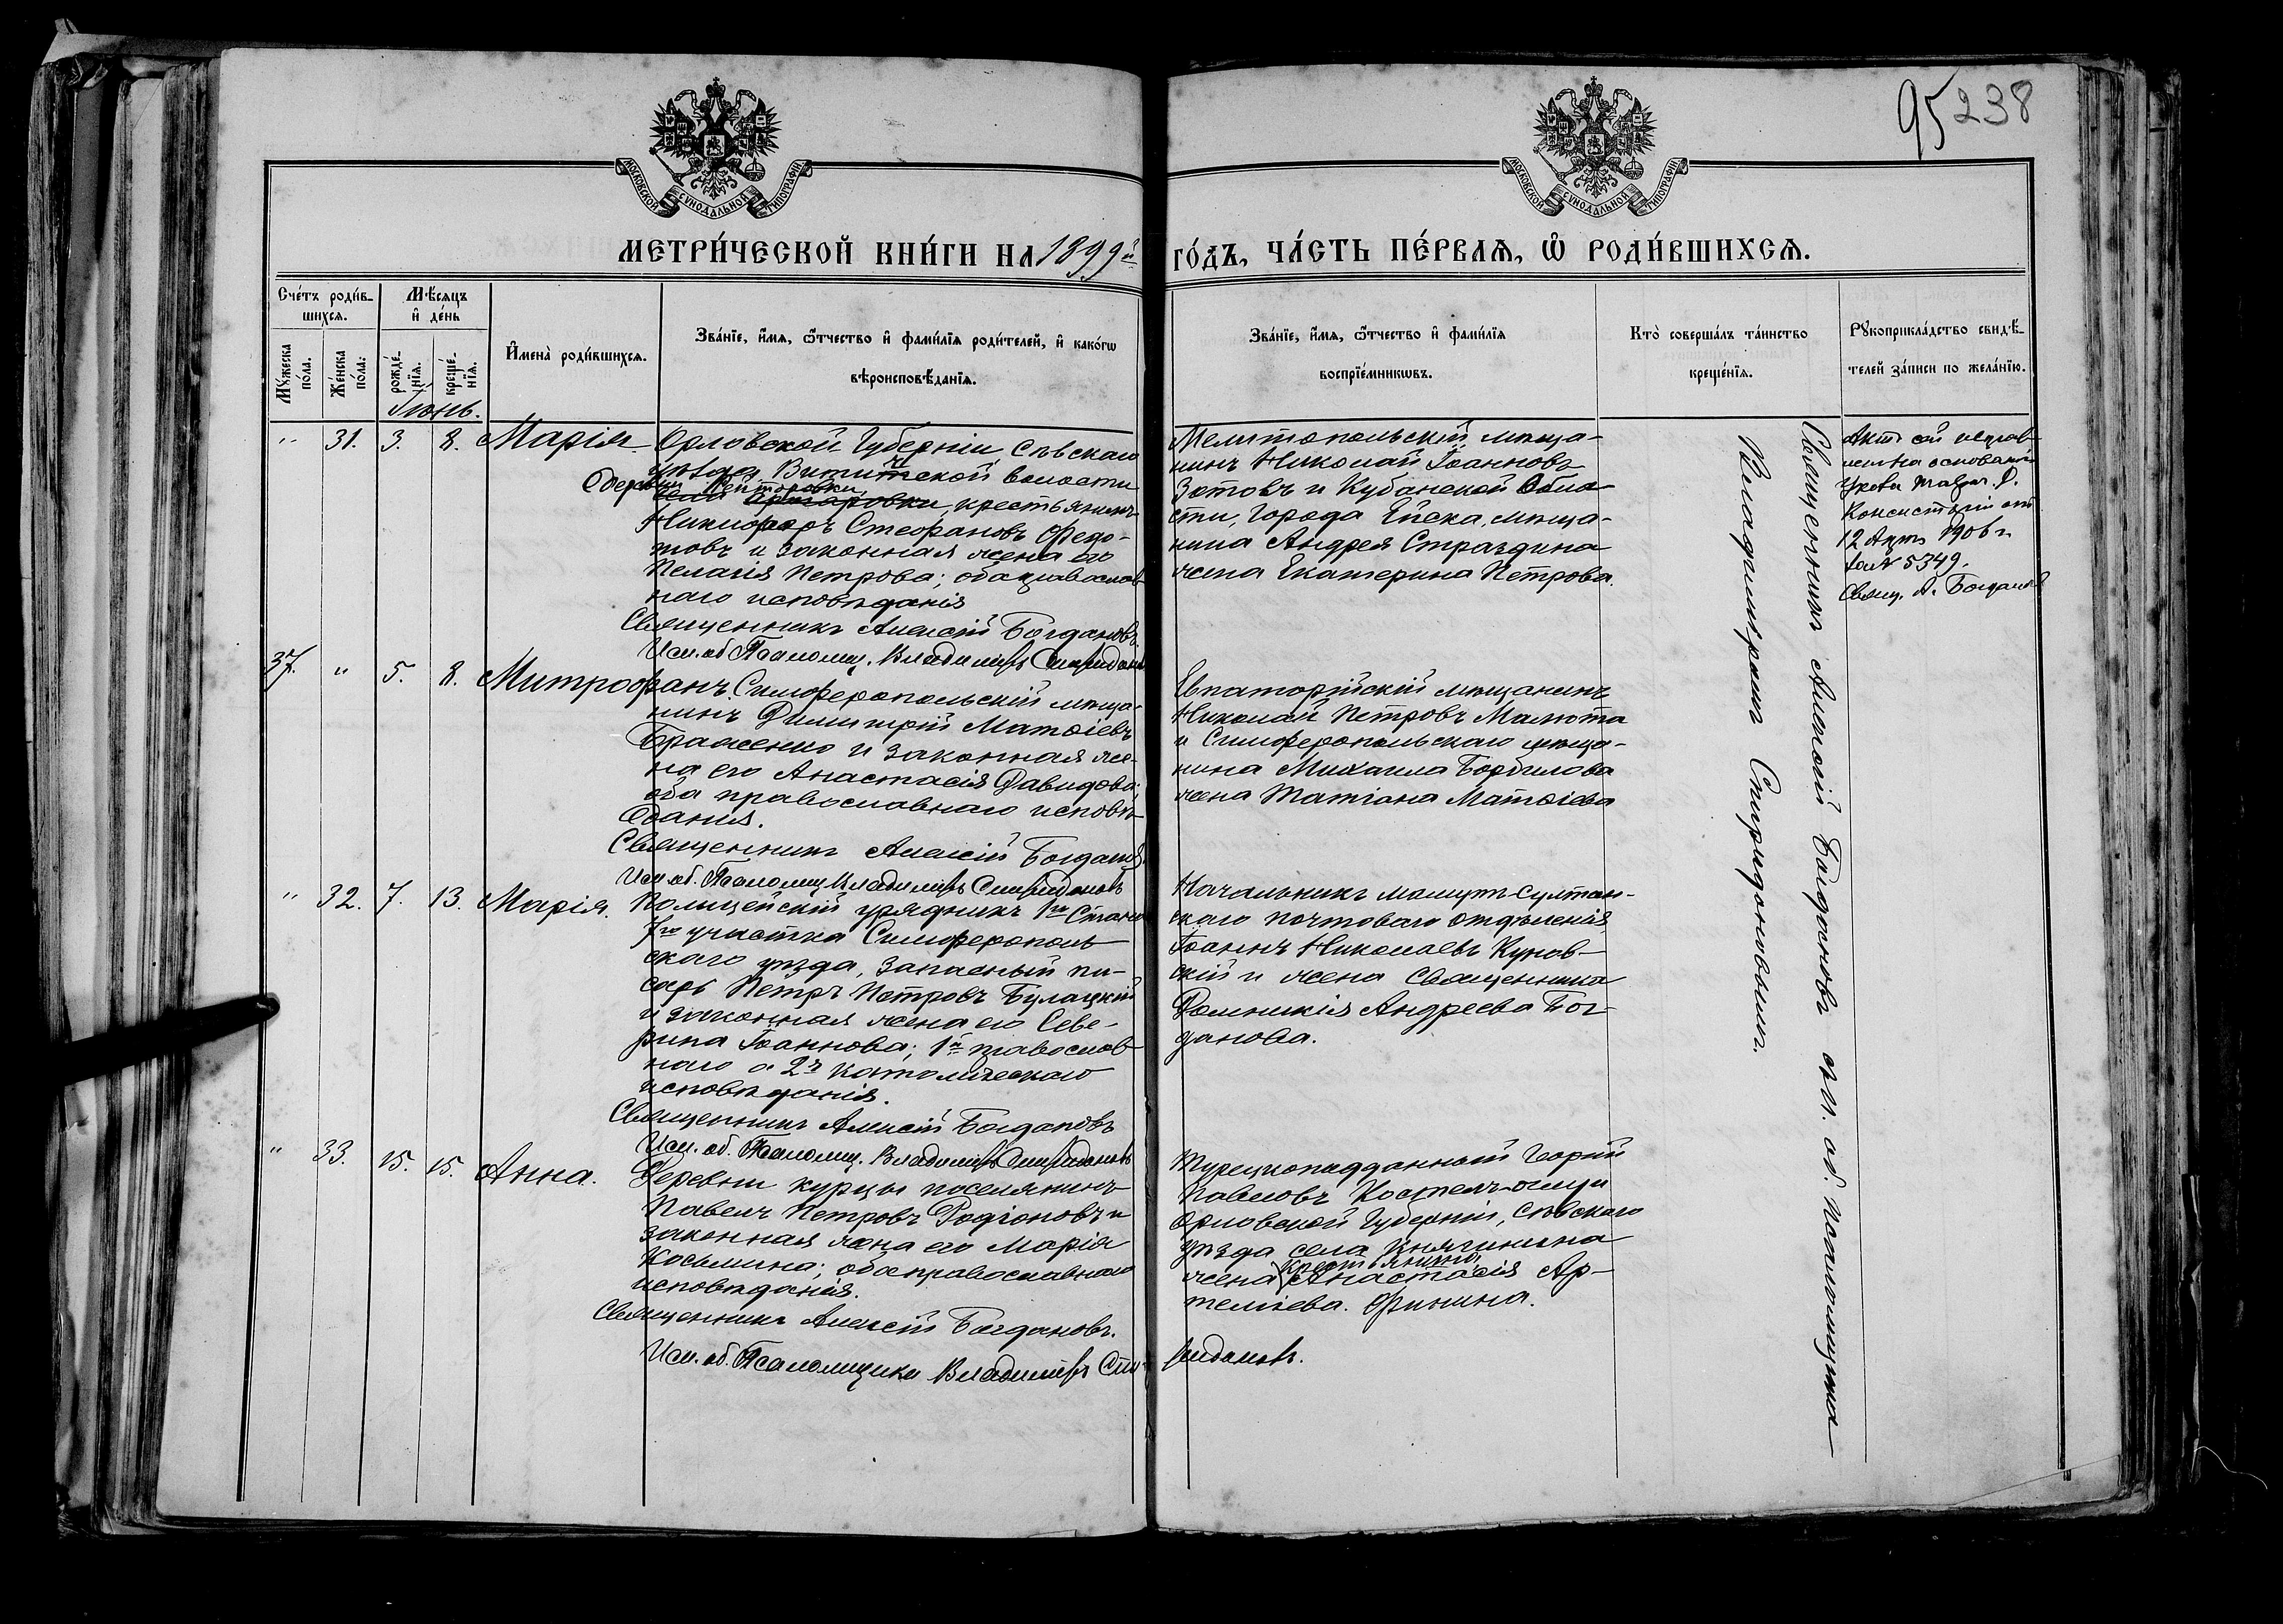 95 238
МОСКОВСКОЙ СѴНОДАЛЬНОЙ ТИПОГРАФІИ
МОСКОВСКОЙ СѴНОДАЛЬНОЙ ТИПОГРАФІИ
МЕТРИ́ЧЕСКОЙ КНИ́ГИ НА 1899й ГО́ДЪ, ЧА́СТЬ ПЕ́РВАЯ, Ѿ РОДИ́ВШИХСЯ.
Сче́тъ роди́в-
шихся.
Мѣ́сяцъ
и҆ де́нь
Му́жеска по́ла.
Же́нска по́ла.
рожде́-
нїя.
креще́-
нїя.
И҆мена̀ роди́вшихся.
Зва́нїе, и҆́мя, ѻ҆́тчество и҆ фами́лїя роди́телей, и҆ како́гѡ
вѣроисповѣ́данїя.
Зва́нїе, и҆́мя, ѻ҆́тчество и҆ фами́лїя
воспрїе́мникѡвъ.
Кто̀ соверша́лъ та́инство
креще́нїя.
Рꙋкоприкла́дство свидѣ́-
телей за́писи по жела́нїю.
Іюнь.
" 31. 3. 8. Марія
Орловской Губерніи, Сѣвскаго
уѣзда волости
деревни
крестьянинъ
Никифоръ Стефановъ Федо-
товъ и законная жена его
Пелагія Петрова; оба православ-
наго исповѣданія
Священникъ Алексій Богдановъ
Исп. об. Псаломщ. Владиміръ Спиридоновъ
Мелитопольскій мѣща-
нинъ Николай Іоанновъ
Зотовъ и Кубанской Обла-
сти, Города Ейска, мѣща-
нина Андрея Страздина
жена Екатерина Петрова.
Актъ сей исправ-
ленъ на основаніи
Указа Тавр. Д.
Консисторіи отъ
12 Апр. 1906 г.
за № 5349.
Свящ. А. Богданов
37. " 5. 8. Митрофанъ.
Симферопольскій мѣща-
нинъ Димитрій Матѳіевъ
Браженко и законная же-
на его Анастасія Давидова;
оба православнаго исповѣ-
данія.
Священникъ Алексій Богдановъ
Исп. об. Псаломщ. Владиміръ Спиридоновъ
Евпаторійскій мѣщанинъ
Николай Петровъ Малюта
и Симферопольскаго мѣща-
нина Михаила
жена Татіана Матѳіева
" 32. 7. 13. Марія.
Полицейскій урядникъ 1го Стана
участка Симферополь-
скаго уѣзда, запасный пи-
сарь Петръ Петровъ Булацкій
и законная жена его Севе-
рина Іоаннова; 1й православ-
наго а 2я католическаго
исповѣданія.
Священникъ Алексій Богдановъ
Исп. об. Псаломщ. Владиміръ Спиридоновъ
Начальникъ Мамутъ-Султан-
скаго почтоваго отдѣленія
Іоаннъ Николаевъ Кунов-
скій и жена Священника
Домникія Андреева Бог-
данова.
" 33. 15. 15. Анна.
Деревни Курцы поселянинъ
Павелъ Петровъ Родіоновъ и
законная жена его Марія
Косьмина; оба православнаго
исповѣданія.
Священникъ Алексій Богдановъ.
Исп. об. Псаломщика Владиміръ Спиридоновъ.
Турецкоподданный Георгій
Павловъ
Орловской Губерніи, Сѣвскаго
уѣзда села Княгинина
крестьянина
жена Анастасія Ар-
темьева Финина.
Священникъ Алексій Богдановъ съ и. об. псаломщика
Владиміромъ Спиридоновымъ.